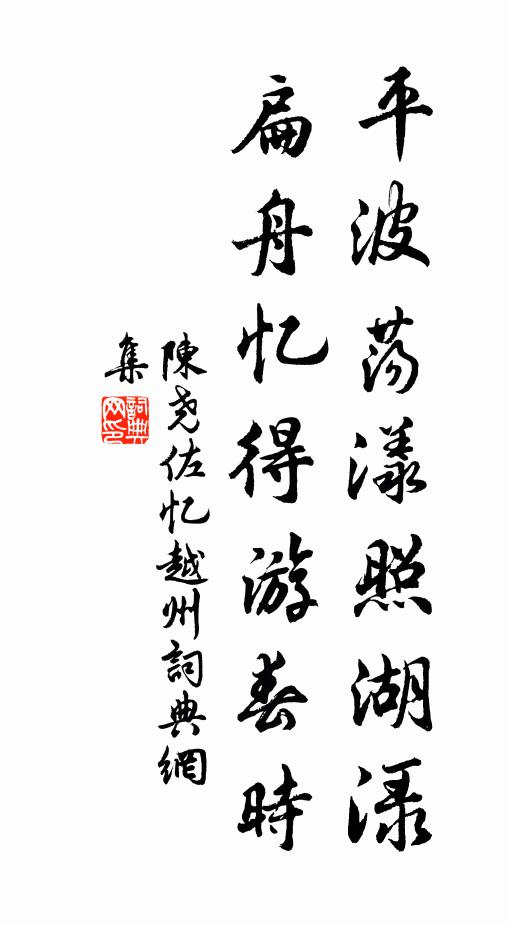 平波荡漾照湖渌
扁舟忆得游春時
陳尧佐忆越州詞典網
集
詞典网印